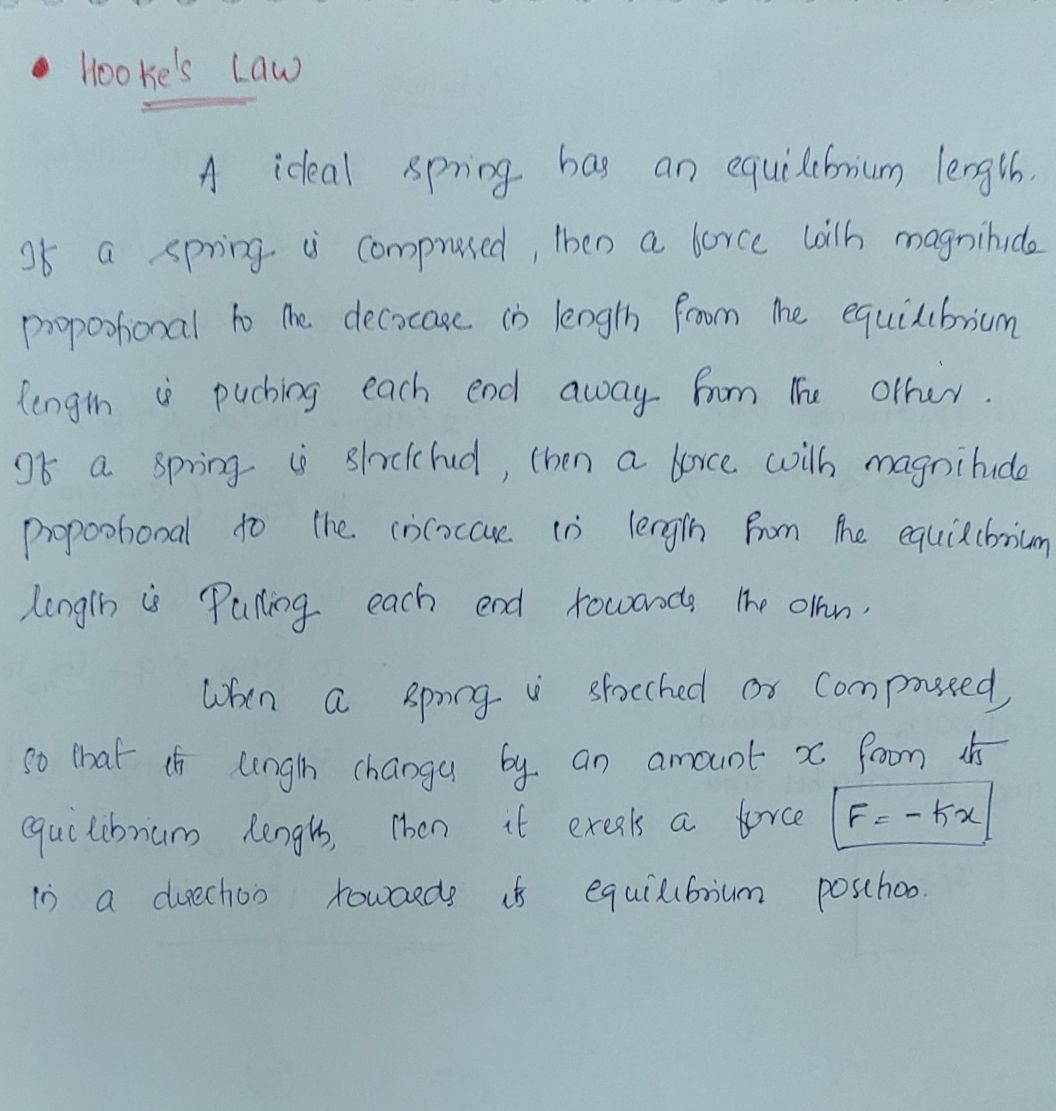 • Hooke's Law
A ideal spring has an equilibrium length.
If a spring is compressed, then a force with magnitude
proportional to the decrease in length from the equilibrium
length is puching each end away from the other.
If a spring is stretched, then a force with magnitude
proportional to the increase in length from the equilibrium
length is Pulling each end towards the other.
When a spring is streched or compressed,
so that its length changes by an amount x from its
equilibrium length, then it exerts a force F = - kx
in a direction towards its equilibrium position.